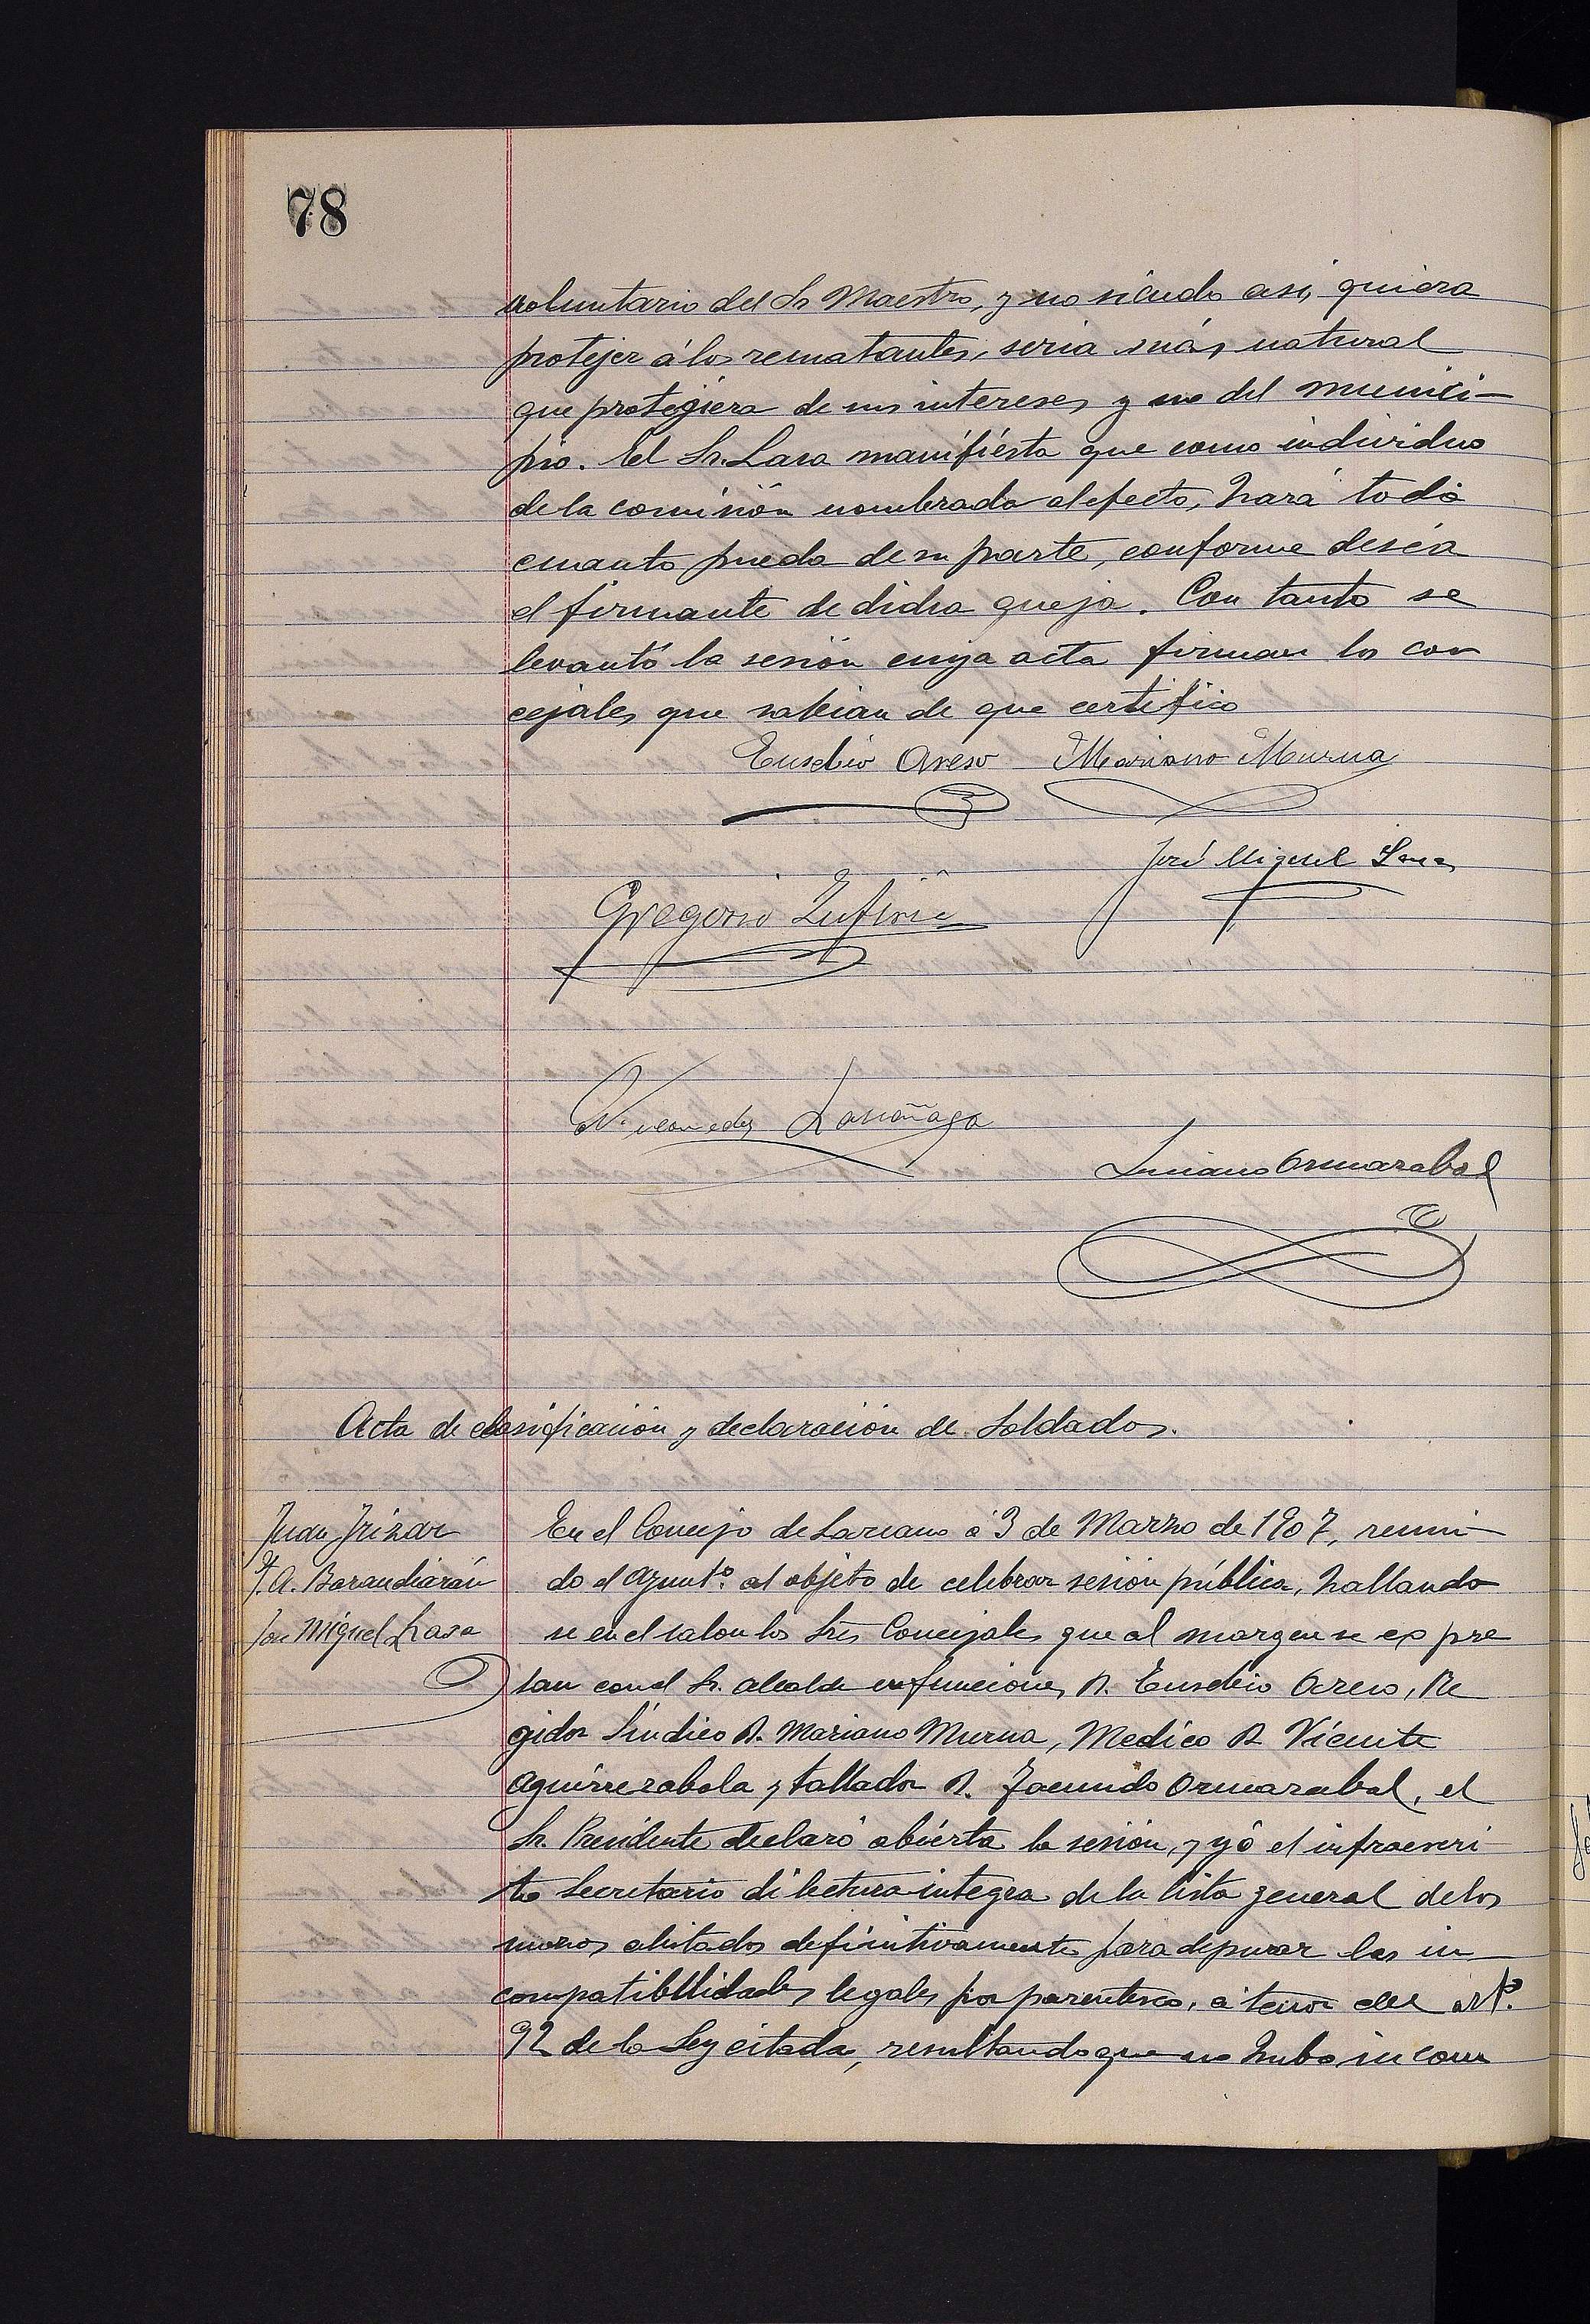 78
voluntario del Sr Maestro, y no siendo asi, quiera
protejer á los rematantes, seria más natural
que protegiera de sus intereses y no del munici-
pio. El Sr. Lasa manifiesta que como individuo
de la comisión nombrada al efecto, hará todo
cuanto pueda de su parte, conforme deséa
el firmante de dicha queja. Con tanto se
levantó la sesión cuya acta firman los con
cejales que sabian de que certifico
Eusebio Areso Mariano Murua
José Miguel Lasa
Gregorio Zufiria
Nicomedes Larrañaga
Luciano Ormazabal
Acta de clasificación y declaración de Soldados.
Juan Irizar
J. A. Barandiarán
José Miguel Lasa
En el Concejo de Lazcano á 3 de Marzo de 1907, reuni-
do el Ayuntº. al objeto de celebrar sesión pública, hallando
se en el salon los Sres Concejales que al margen se expre
san con el Sr. alcalde en funciones D. Eusebio Areso, Re
gidor Síndico D. Mariano Murua, Medico D Vicente
Aguirrezabala y tallador D. Facundo Ormazabal, el
Sr. Presidente declaró abierta la sesión, y yó el infraescri
to Secretario di lectura integra de la lista general de los
mozos alistados definitivamente para depurar las in
compatibilidades legales por parentesco, á tenor del artº.
92 de la Ley citada, resultando que no hubo incom